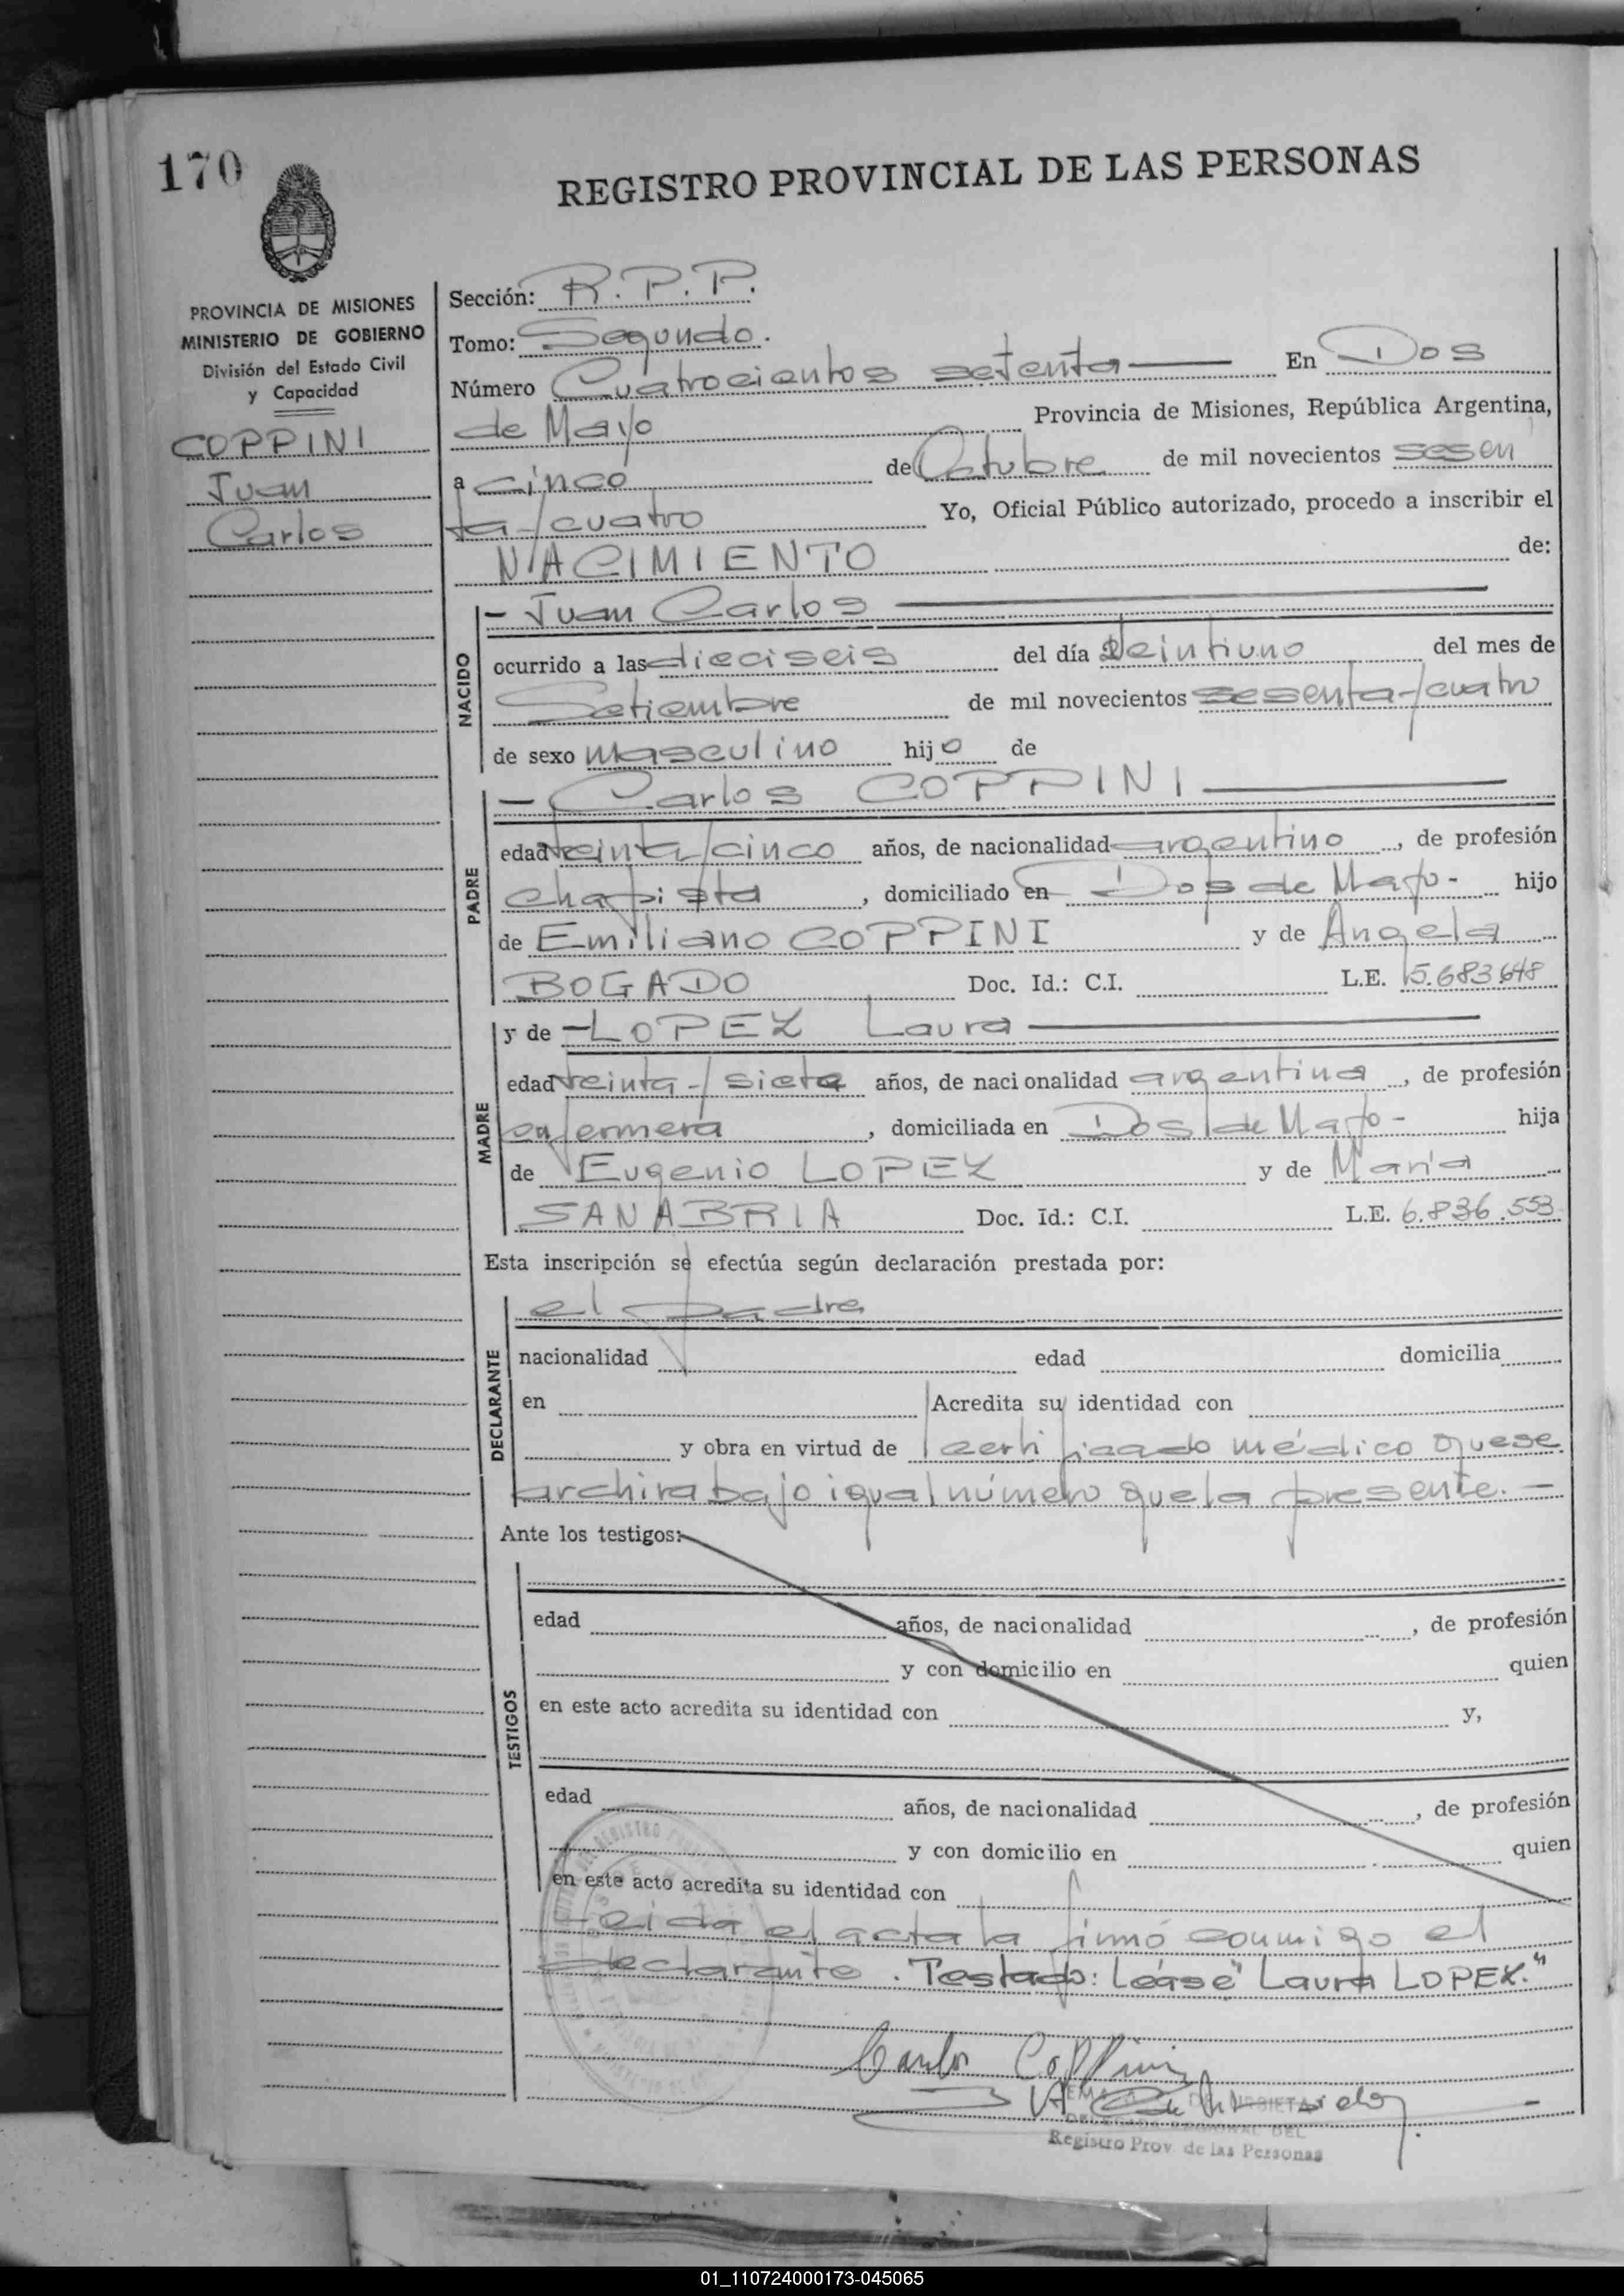 170
REGISTRO PROVINCIAL DE LAS PERSONAS
PROVINCIA DE MISIONES
MINISTERIO DE GOBIERNO
División del Estado Civil
y Capacidad
COPPINI
Juan
Carlos
Sección: R.P.P.
Tomo: Segundo.
Número Cuatrocientos setenta En Dos
de Mayo Provincia de Misiones, República Argentina,
a cinco de Octubre de mil novecientos sesen
ta y cuatro Yo, Oficial Público autorizado, procedo a inscribir el
NACIMIENTO de:
NACIDO
- Juan Carlos
ocurrido a las dieciseis del día Veintiuno del mes de
Setiembre de mil novecientos sesenta y cuatro
de sexo masculino hijo de
PADRE
- Carlos COPPINI
edad treinta y cinco años, de nacionalidad argentino, de profesión
chapista, domiciliado en Dos de Mayo- hijo
de Emiliano COPPINI y de Angela
BOGADO Doc. Id.: C.I. L.E. 5.683.648
MADRE
y de - LOPEZ Laura
edad treinta y siete años, de nacionalidad argentina, de profesión
enfermera, domiciliada en Dos de Mayo- hija
de Eugenio LOPEZ y de María
SANABRIA Doc. Id.: C.I. L.E. 6.836.553
Esta inscripción se efectúa según declaración prestada por:
DECLARANTE
el padre
nacionalidad edad domicilia
en Acredita su identidad con
y obra en virtud de certificado médico que se
archiva bajo igual número que la presente.-
Ante los testigos:
TESTIGOS
edad años, de nacionalidad , de profesión
y con domicilio en quien
en este acto acredita su identidad con y,
edad años, de nacionalidad , de profesión
y con domicilio en quien
en este acto acredita su identidad con
Leida el acta la firmó conmigo el
declarante. Testado: Léase "Laura LOPEZ."
Carlos Coppini
Registro Prov. de las Personas
01_110724000173-045065